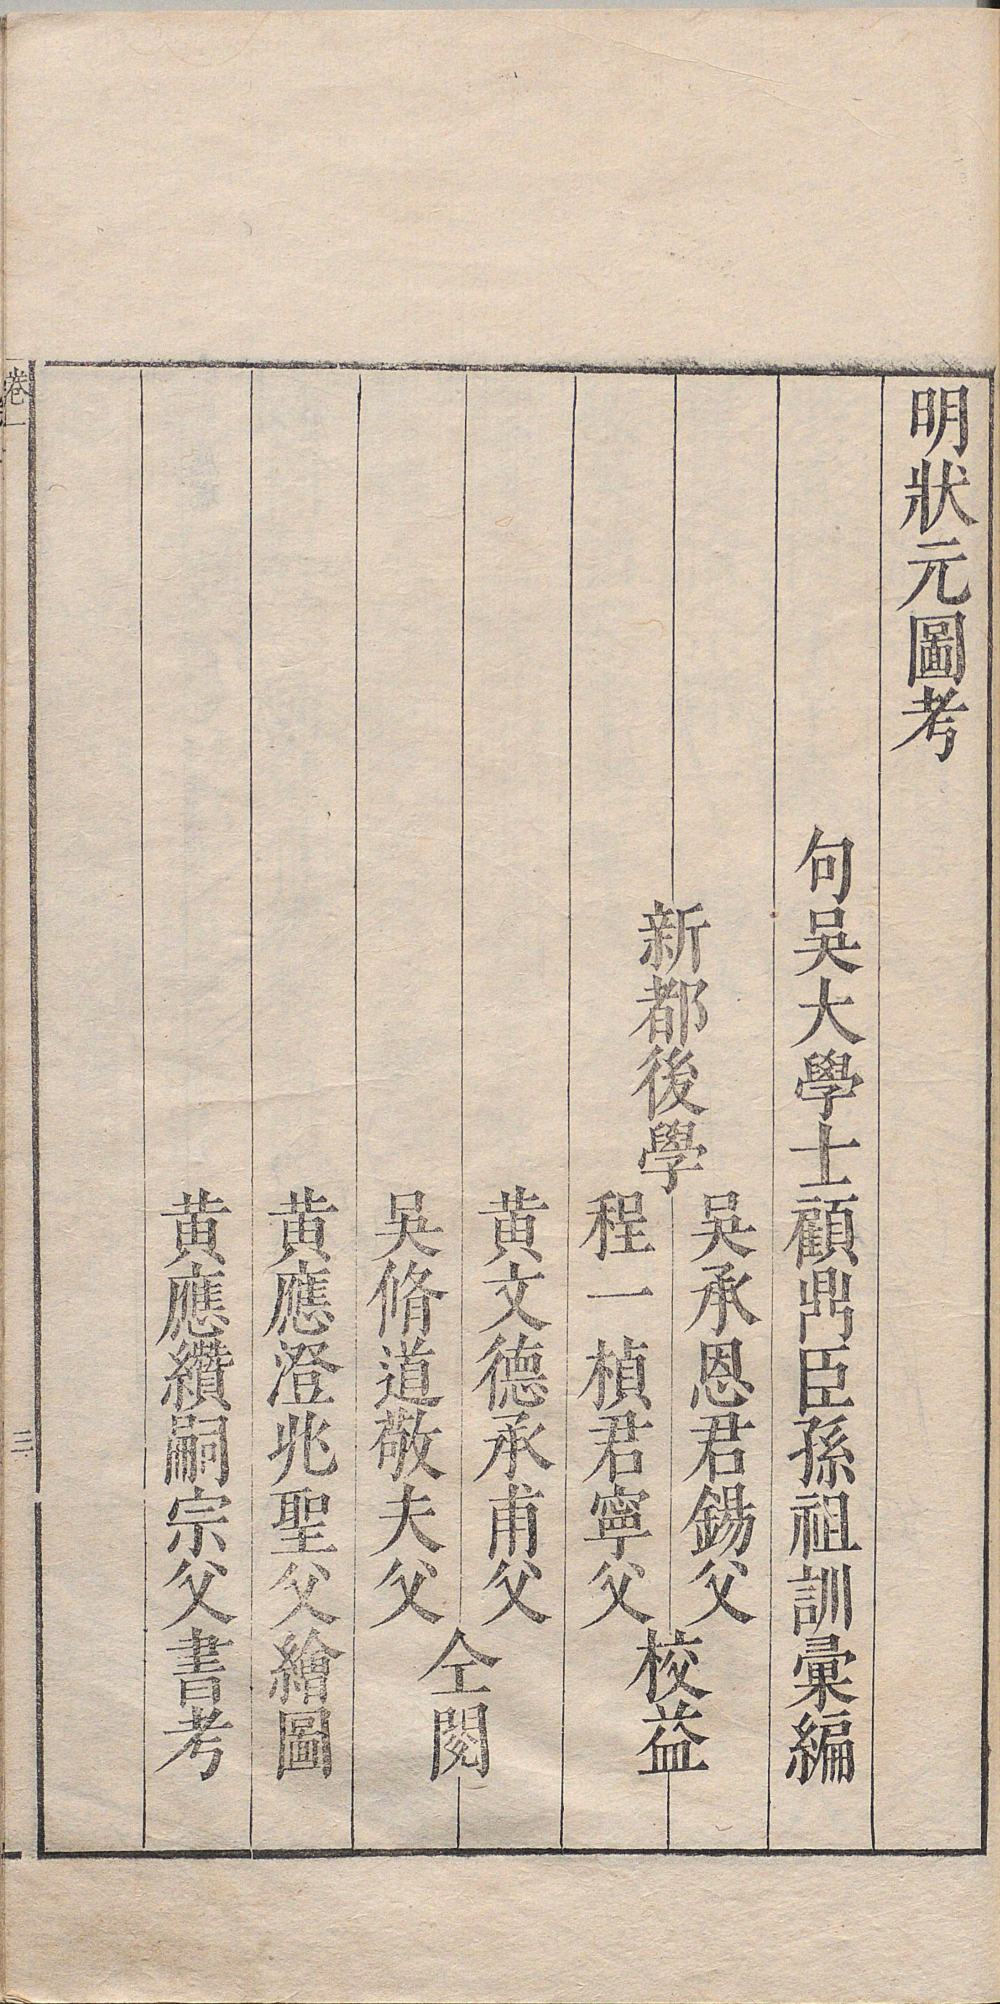 明狀元圖考
句吳大學士顧鼎臣孫祖訓彙編
新都後學
吳承恩君錫父
程一楨君寧父
校益
黃文德承甫父
吳脩道敬夫父
仝閱
黃應澄兆聖父繪圖
黃應纘嗣宗父書考
卷一
三